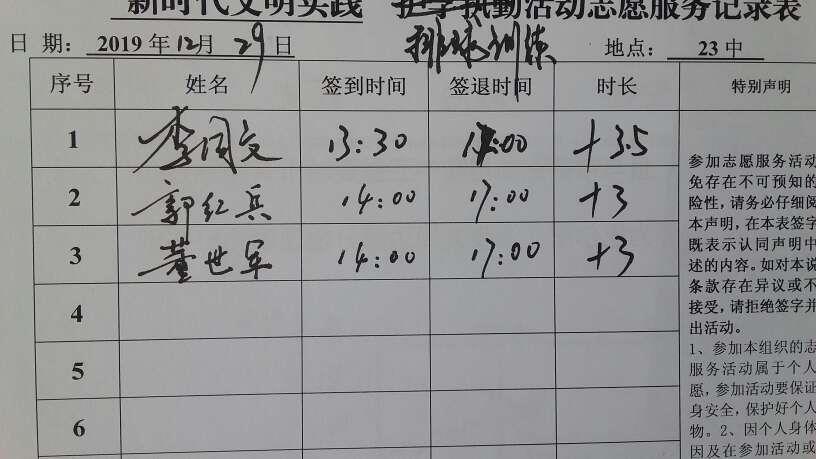 新时代文明实践 护学执勤活动志愿服务记录表
日 期: 2019 年 12月 29日 排球训练 地点: 23 中
序号 姓名 签到时间 签退时间 时长 特别声明
1 李同文 13:30 17:00 +3.5
2 郭红兵 14:00 17:00 +3
3 董世军 14:00 17:00 +3
4
5
6
参加志愿服务活动
免存在不可预知的
险性,请务必仔细阅
本声明,在本表签字
既表示认同声明中
述的内容。如对本说
条款存在异议或不
接受,请拒绝签字并
出活动。
1、参加本组织的志
服务活动属于个人
愿,参加活动要保证
身安全,保护好个人
物。2、因个人身体
因及在参加活动或